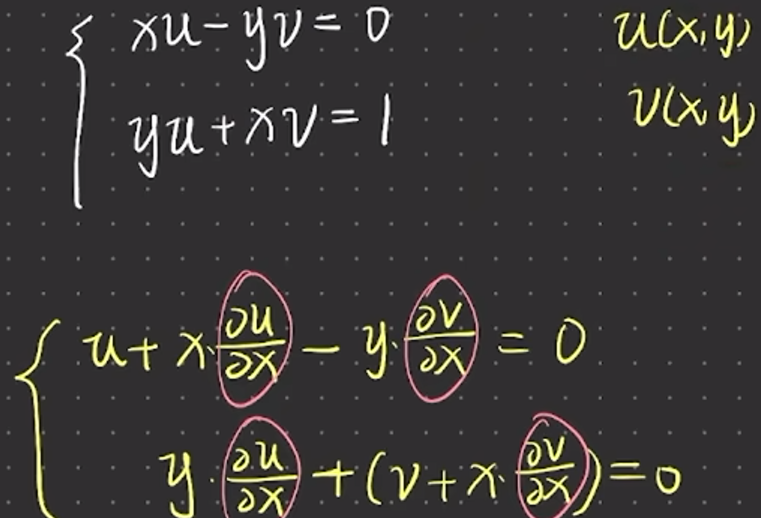 xu - yv = 0
u(x,y)
yu + xv = 1
v(x y)
u + x · ∂u/∂x - y · ∂v/∂x = 0
y · ∂u/∂x + (v + x · ∂v/∂x) = 0